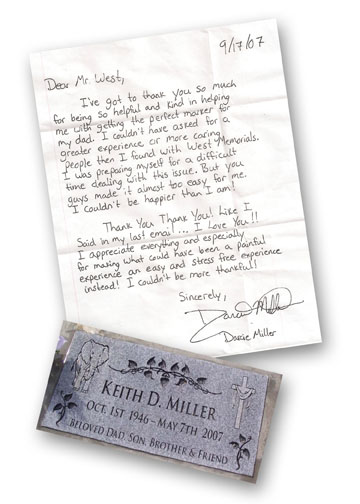 9/17/07
Dear Mr. West,
I've got to thank you so much
for being so helpful and kind in helping
me with getting the perfect marker for
my dad. I couldn't have asked for a
greater experience or more caring
people then I found with West Memorials.
I was preparing myself for a difficult
time dealing with this issue. But you
guys made it almost too easy for me.
I couldn't be happier than I am!
Thank You Thank You! Like I
Said in my last email... I Love You!!
I appreciate everything and especially
for making what could have been a painful
experience an easy and stress free experience
instead! I couldn't be more thankful!
Sincerely,
Darcie Miller
Darcie Miller
KEITH D. MILLER
OCT. 1ST 1946 – MAY 7TH 2007
BELOVED DAD, SON, BROTHER & FRIEND